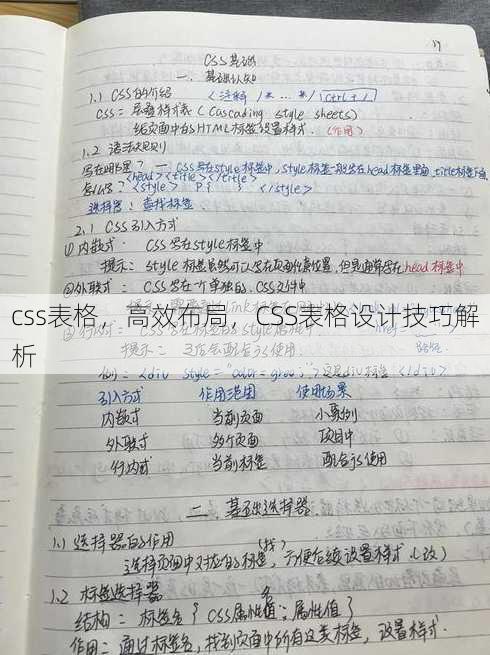 19
CSS基础
一、基础认知
1.1 CSS的介绍 (注释 /* ... */ ctrl + /)
CSS：层叠样式表 (Cascading style sheets)
给页面中的HTML标签设置样式 (作用)
1.2 语法规则
写在哪里？ — CSS写在style标签中，style标签一般写在head标签里面，title标签下面
<head><title></title>
怎么写？<style> P { } </style>
选择器：查找标签
2.1 CSS引入方式
①内嵌式： CSS写在style标签中
提示：style标签虽然可以写在页面任意位置，但是通常写在head标签中
②外联式： CSS写在一个单独的.css文件中
css表格，高效布局，CSS表格设计技巧解
析
提示： 之后会配合js使用
<div style="color=green;">这是div标签</div>
引入方式 作用范围 使用场景
内嵌式 当前页面 小案例
外联式 多个页面 项目中
行内式 当前标签 配合js使用
二、基础选择器
1.1 选择器的作用
选择页面中对应的标签(找)，方便后续设置样式(改)
1.2 标签选择器
结构：标签名 { CSS属性名：属性值 }
作用：通过标签名，找到页面中所有这类标签，设置样式.